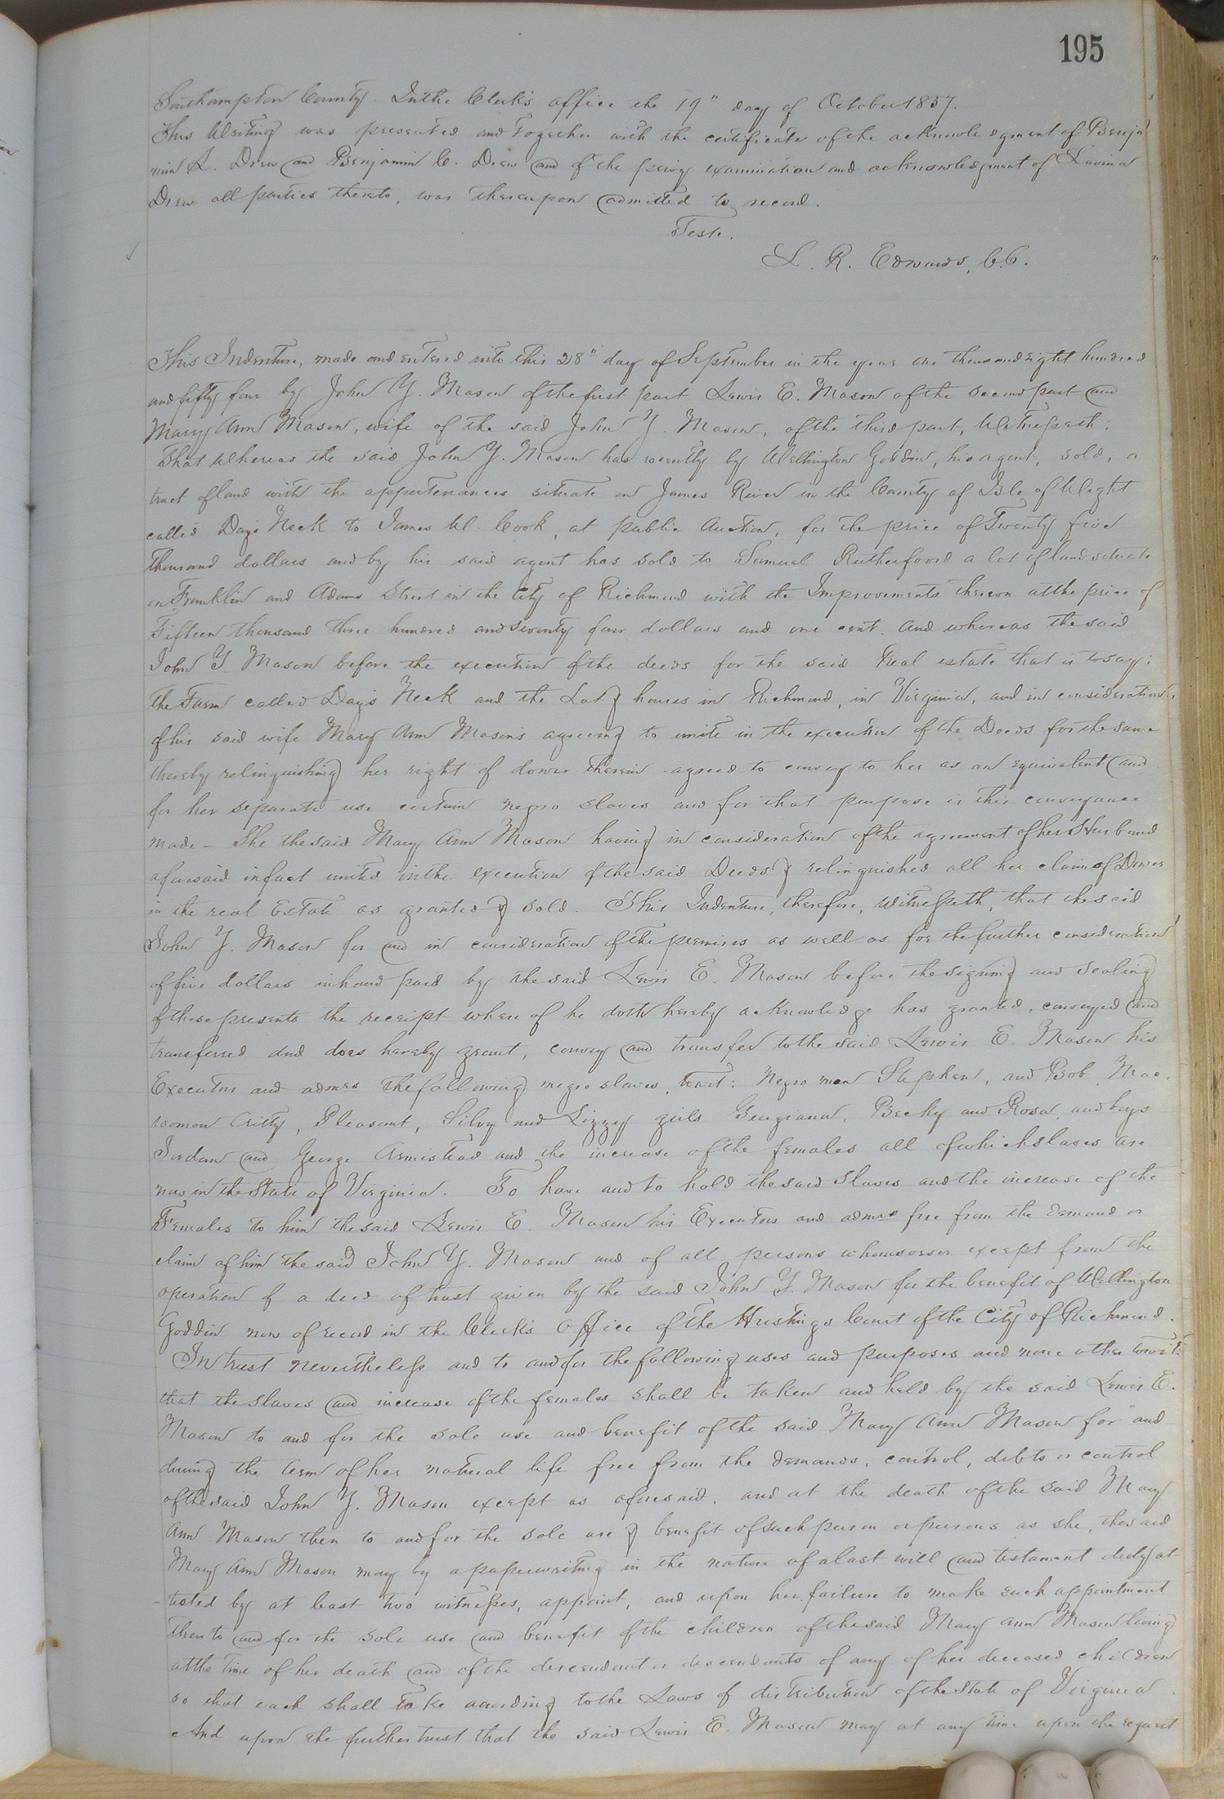 195
Southampton County. In the Clerk's office the 19" day of October 1857.
This Writing was presented and together with the certificate of the acknowledgment of Benja
min A. Drew and Benjamin C. Drew and of the privy examination and acknowledgment of Lavinia
Drew all parties thereto, was thereupon admitted to record.
Teste.
L. R. Edwards, C.C.
This Indenture, made and entered into this 28" day of September in the year one thousand eight hundred
and fifty four by John Y. Mason of the first part Lewis E. Mason of the second part and
Mary Ann Mason, wife of the said John Y. Mason, of the third part, Witnesseth:
That whereas the said John Y. Mason has recently by Wellington Goddin, his agent, sold, a
tract of land with the appertenances situate on James River in the County of Isle of Wight
called Day's Neck to James W. Cook, at public Auction, for the price of Twenty five
thousand dollars and by his said agent has sold to Samuel Rutherfoord a lot of land situate
on Franklin and Adams Street in the City of Richmond with the Improvements thereon at the price of
Fifteen thousand three hundred and seventy four dollars and one cent. And whereas the said
John Y. Mason before the execution of the deeds for the said Real estate that is to say:
the Farm called Day's Neck and the Lot & houses in Richmond, in Virginia, and in consideration
of his said wife Mary Ann Mason's agreeing to unite in the execution of the Deeds for the same
thereby relinquishing her right of dower therein agreed to convey to her as an equivalent and
for her separate use certain negro slaves and for that purpose is this conveyance
made - She the said Mary Ann Mason having in consideration of the agreement of her Husband
aforesaid in fact united in the execution of the said Deeds & relinquished all her claim of Dower
in the real Estate as granted & sold. This Indenture, therefore, witnesseth, that the said
John Y. Mason for and in consideration of the premises as well as for the further consideration
of five dollars in hand paid by the said Lewis E. Mason before the signing and sealing
of these presents the receipt where of he doth hereby acknowledge has granted, conveyed and
transferred and does hereby grant, convey and transfer to the said Lewis E. Mason his
Executors and admrs the following negro slaves, towit: Negro men Stephen, and Bob,
women Critty, Pleasant, Silvy and Lizzy girls Georgiana, Becky and Rosa, and boys
Jordan and George Armistead and the increase of the females all of which slaves are
now in the State of Virginia. To have and to hold the said Slaves and the increase of the
Females to him the said Lewis E. Mason his Executors and admrs free from the demand or
claim of him the said John Y. Mason and of all persons whomsoever except from the
operation of a deed of trust given by the said John Y. Mason for the benefit of Wellington
Goddin now of record in the Clerk's Office of the Hustings Court of the City of Richmond.
In trust nevertheless and to and for the following uses and purposes and none other towit:
that the slaves and increase of the females shall be taken and held by the said Lewis E.
Mason to and for the sole use and benefit of the said Mary Ann Mason for and
during the term of her natural life free from the demands, control, debts or control
of the said John Y. Mason except as aforesaid, and at the death of the said Mary
Ann Mason then to and for the sole use & benefit of such person or persons as she, the said
Mary Ann Mason may by a paperwriting in the nature of a last will and testament duly at
-tested by at least two witnesses, appoint, and upon her failure to make such appointment
then to and for the sole use and benefit of the children of the said Mary Ann Mason living
at the time of her death and of the descendant or descendants of any of her deceased children
so that each shall take according to the Laws of distribution of the State of Virginia.
And upon the further trust that the said Lewis E. Mason may at any time upon the request